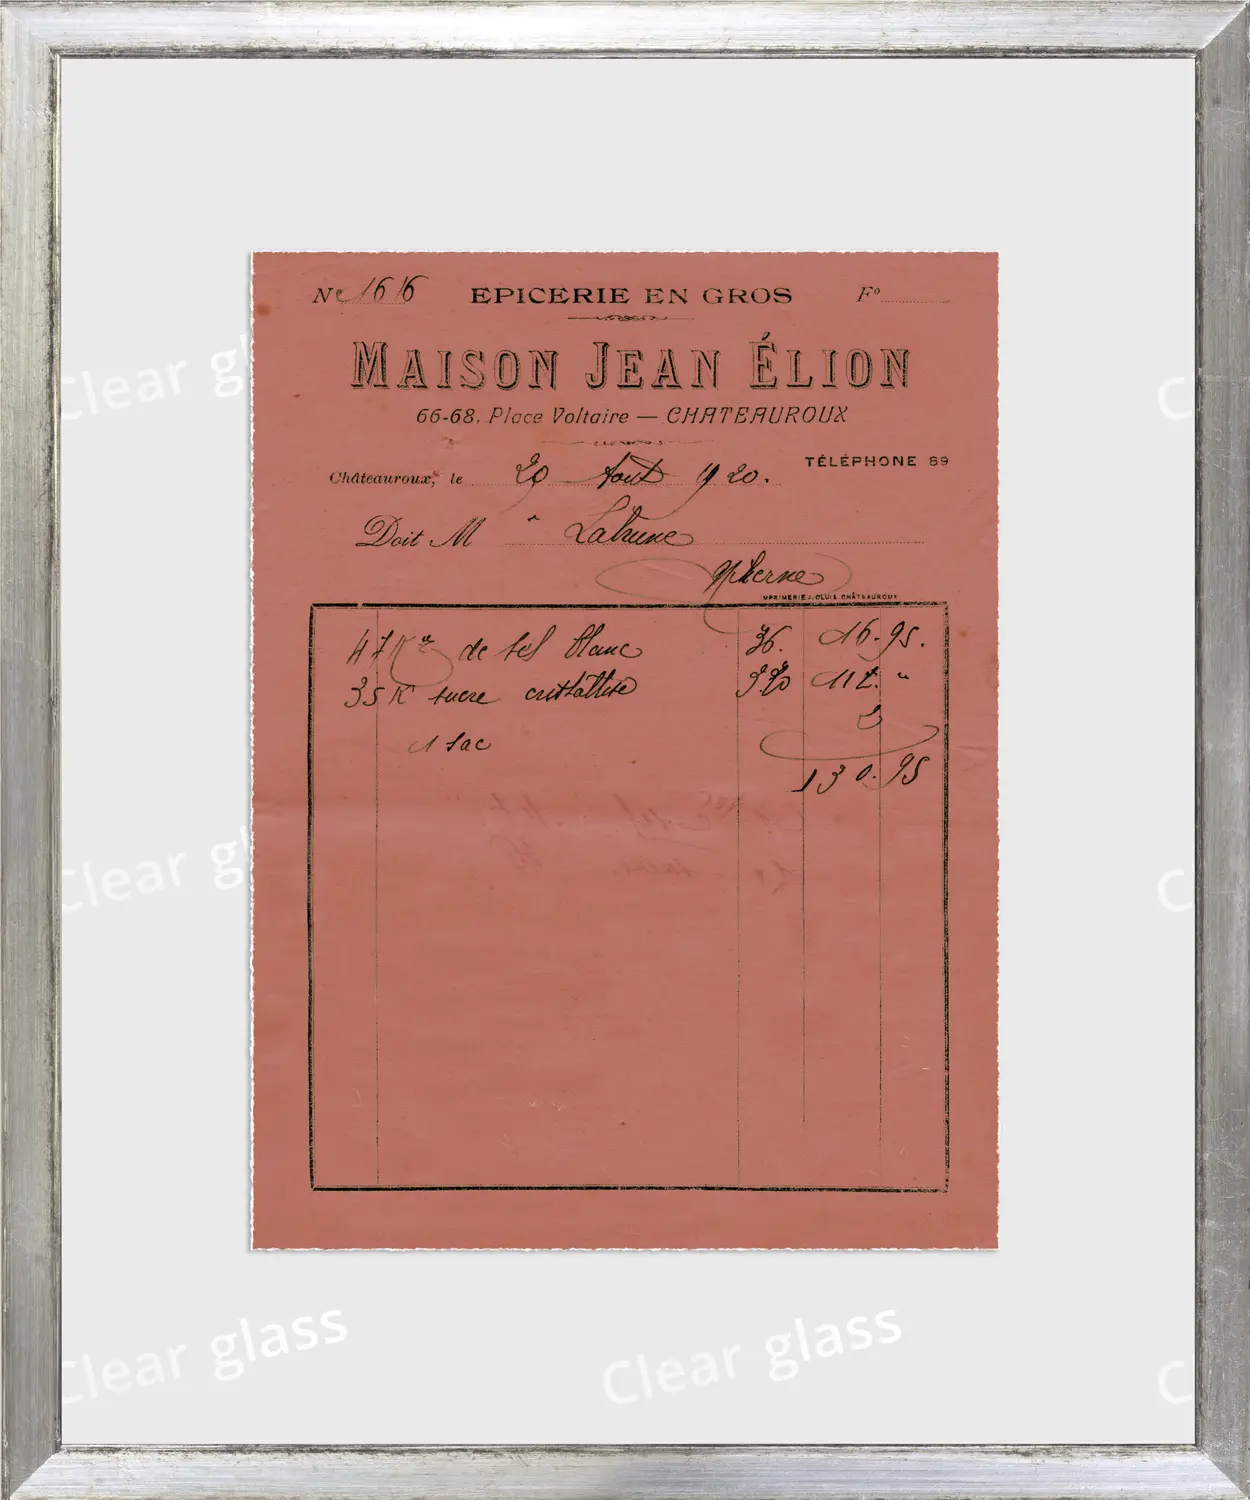 No 1616 EPICERIE EN GROS Fo
MAISON JEAN ÉLION
66-68, Place Voltaire — CHATEAUROUX
TÉLÉPHONE 89
Châteauroux, le 20 Août 1920.
Doit M
IMPRIMERIE CHÂTEAUROUX
47 K de sel blanc 36. 16.95.
35 K sucre cristallisé 3.20 112. "
1 sac 2
130.95
Clear glass
Clear glass
Clear glass
Clear glass